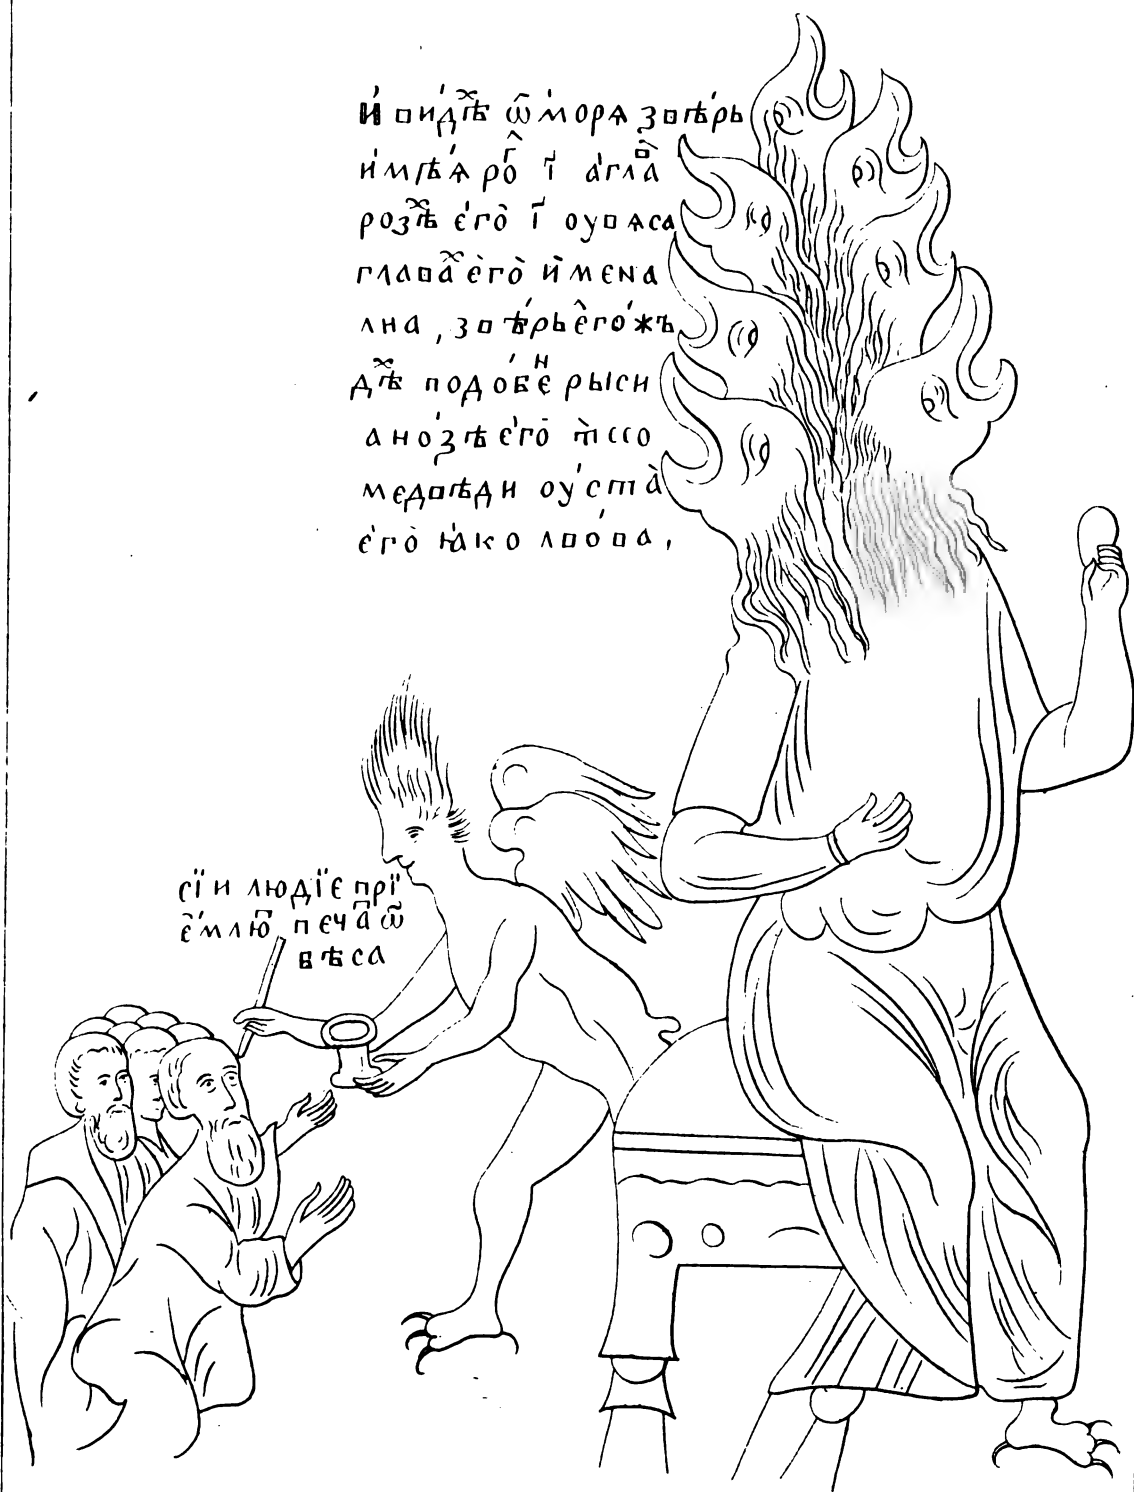 И҆ ви́дѣⷯ ѿ мо́рѧ звѣ́рь
и҆мѣ́ѧ ро́ⷢ ꙇ҃ а҆глаⷡ҇
розѣⷯ є҆го̀ ꙇ҃ оувѧса
главаⷯ є҆го̀ и҆мєна
лна , звѣ́рь є҆го́жъ
дѣⷯ подо́бєⷩ рыси
а но́зѣ є҆го̀ ꙗ҆ссо
мєдвѣди оу҆ста̀
є҆го̀ ꙗ҆ко лво́ва ,
сїи людїє прї
є҆млюⷮ пєчаⷮ ѿ
бѣса